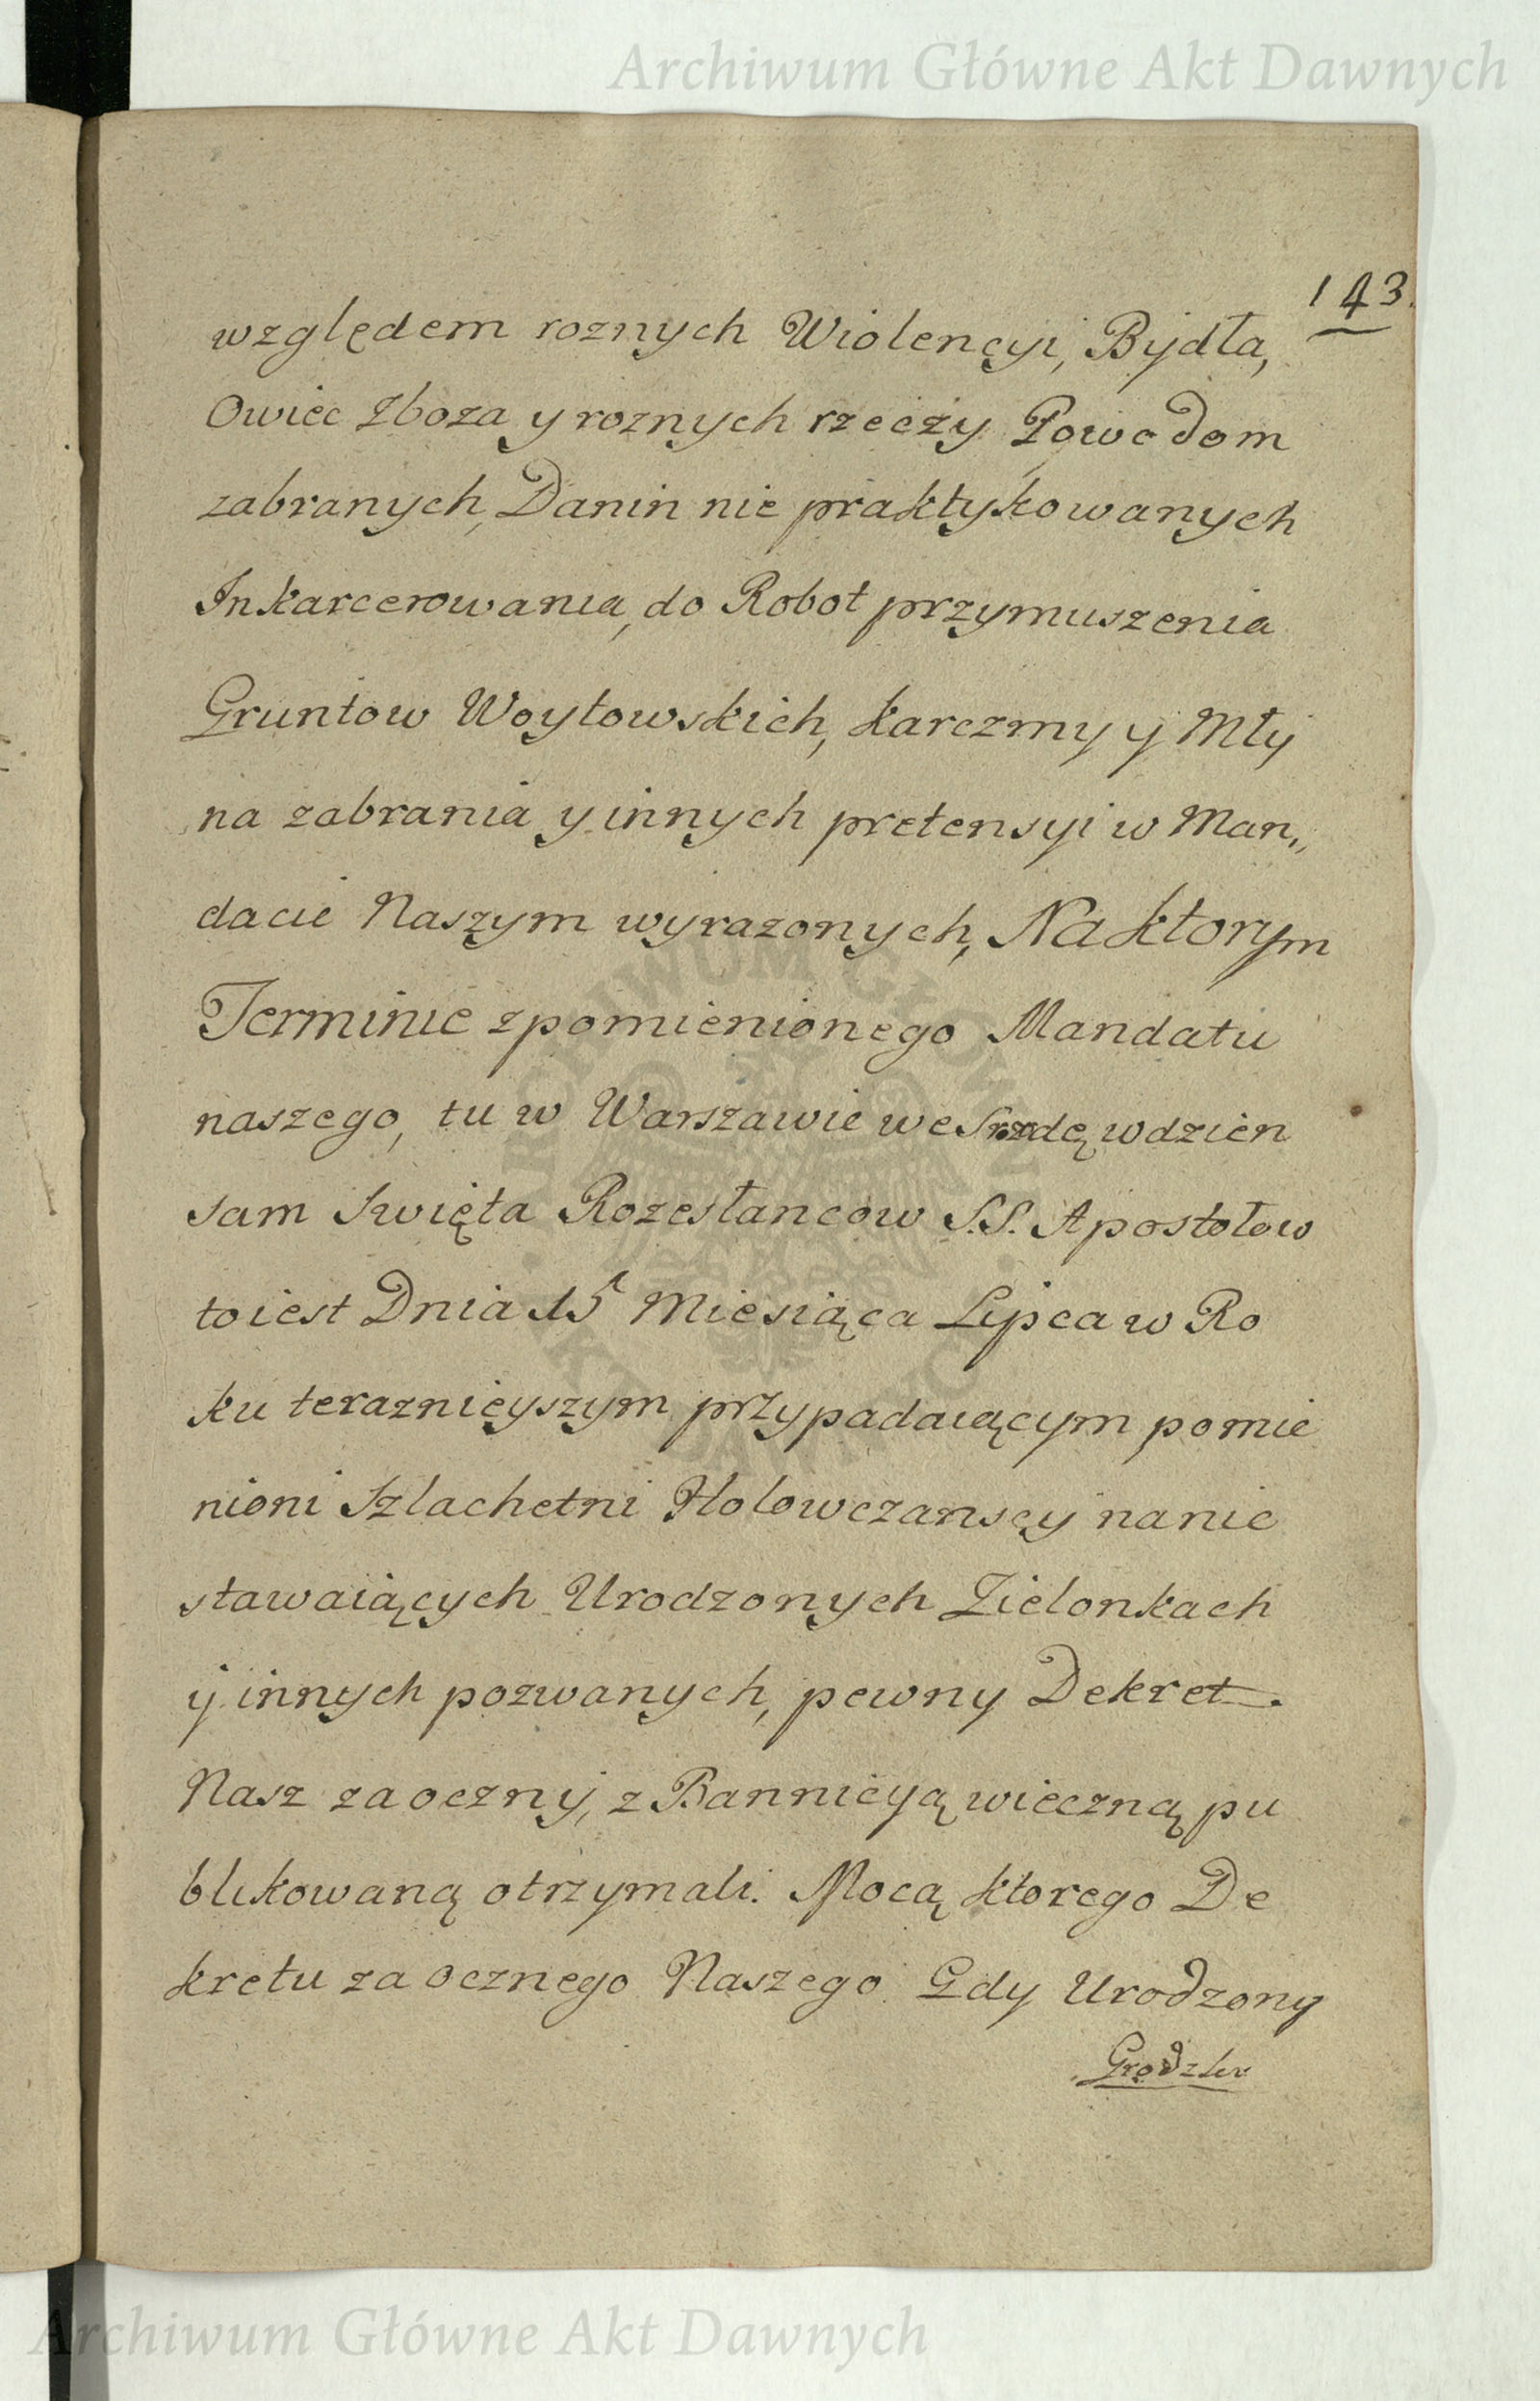 Archiwum Główne Akt Dawnych
143.
względem roznych Wiolencyi, Bydła,
Owiec Zboza y roznych rzeczy Powodom
zabranych, Danin nie praktykowanych
Inkarcerowania, do Robot przymuszenia
Gruntow Woytowskich, karczmy y Mły
na zabrania y innych pretensyi w Man„
dacie Naszym wyrazonych, Na ktorym
Terminie zpomienionego Mandatu
naszego, tu w Warszawie we Srzdę w dzien
sam Swięta Rozesłancow S.S. Apostołow
to iest Dnia 15 Miesiąca Lipca w Ro
ku teraznieyszym przypadaiącym pomie
nioni Szlachetni Holowczanscy na nie
stawaiących Urodzonych Zielonkach
y innych pozwanych, pewny Dekret.
Nasz zaoczny, z Bannicyą wieczną pu
blikowaną otrzymali. Mocą ktorego De
kretu zaocznego Naszego Gdy Urodzony
ARCHIWUM GŁÓWNE AKT DAWNYCH
Archiwum Główne Akt Dawnych